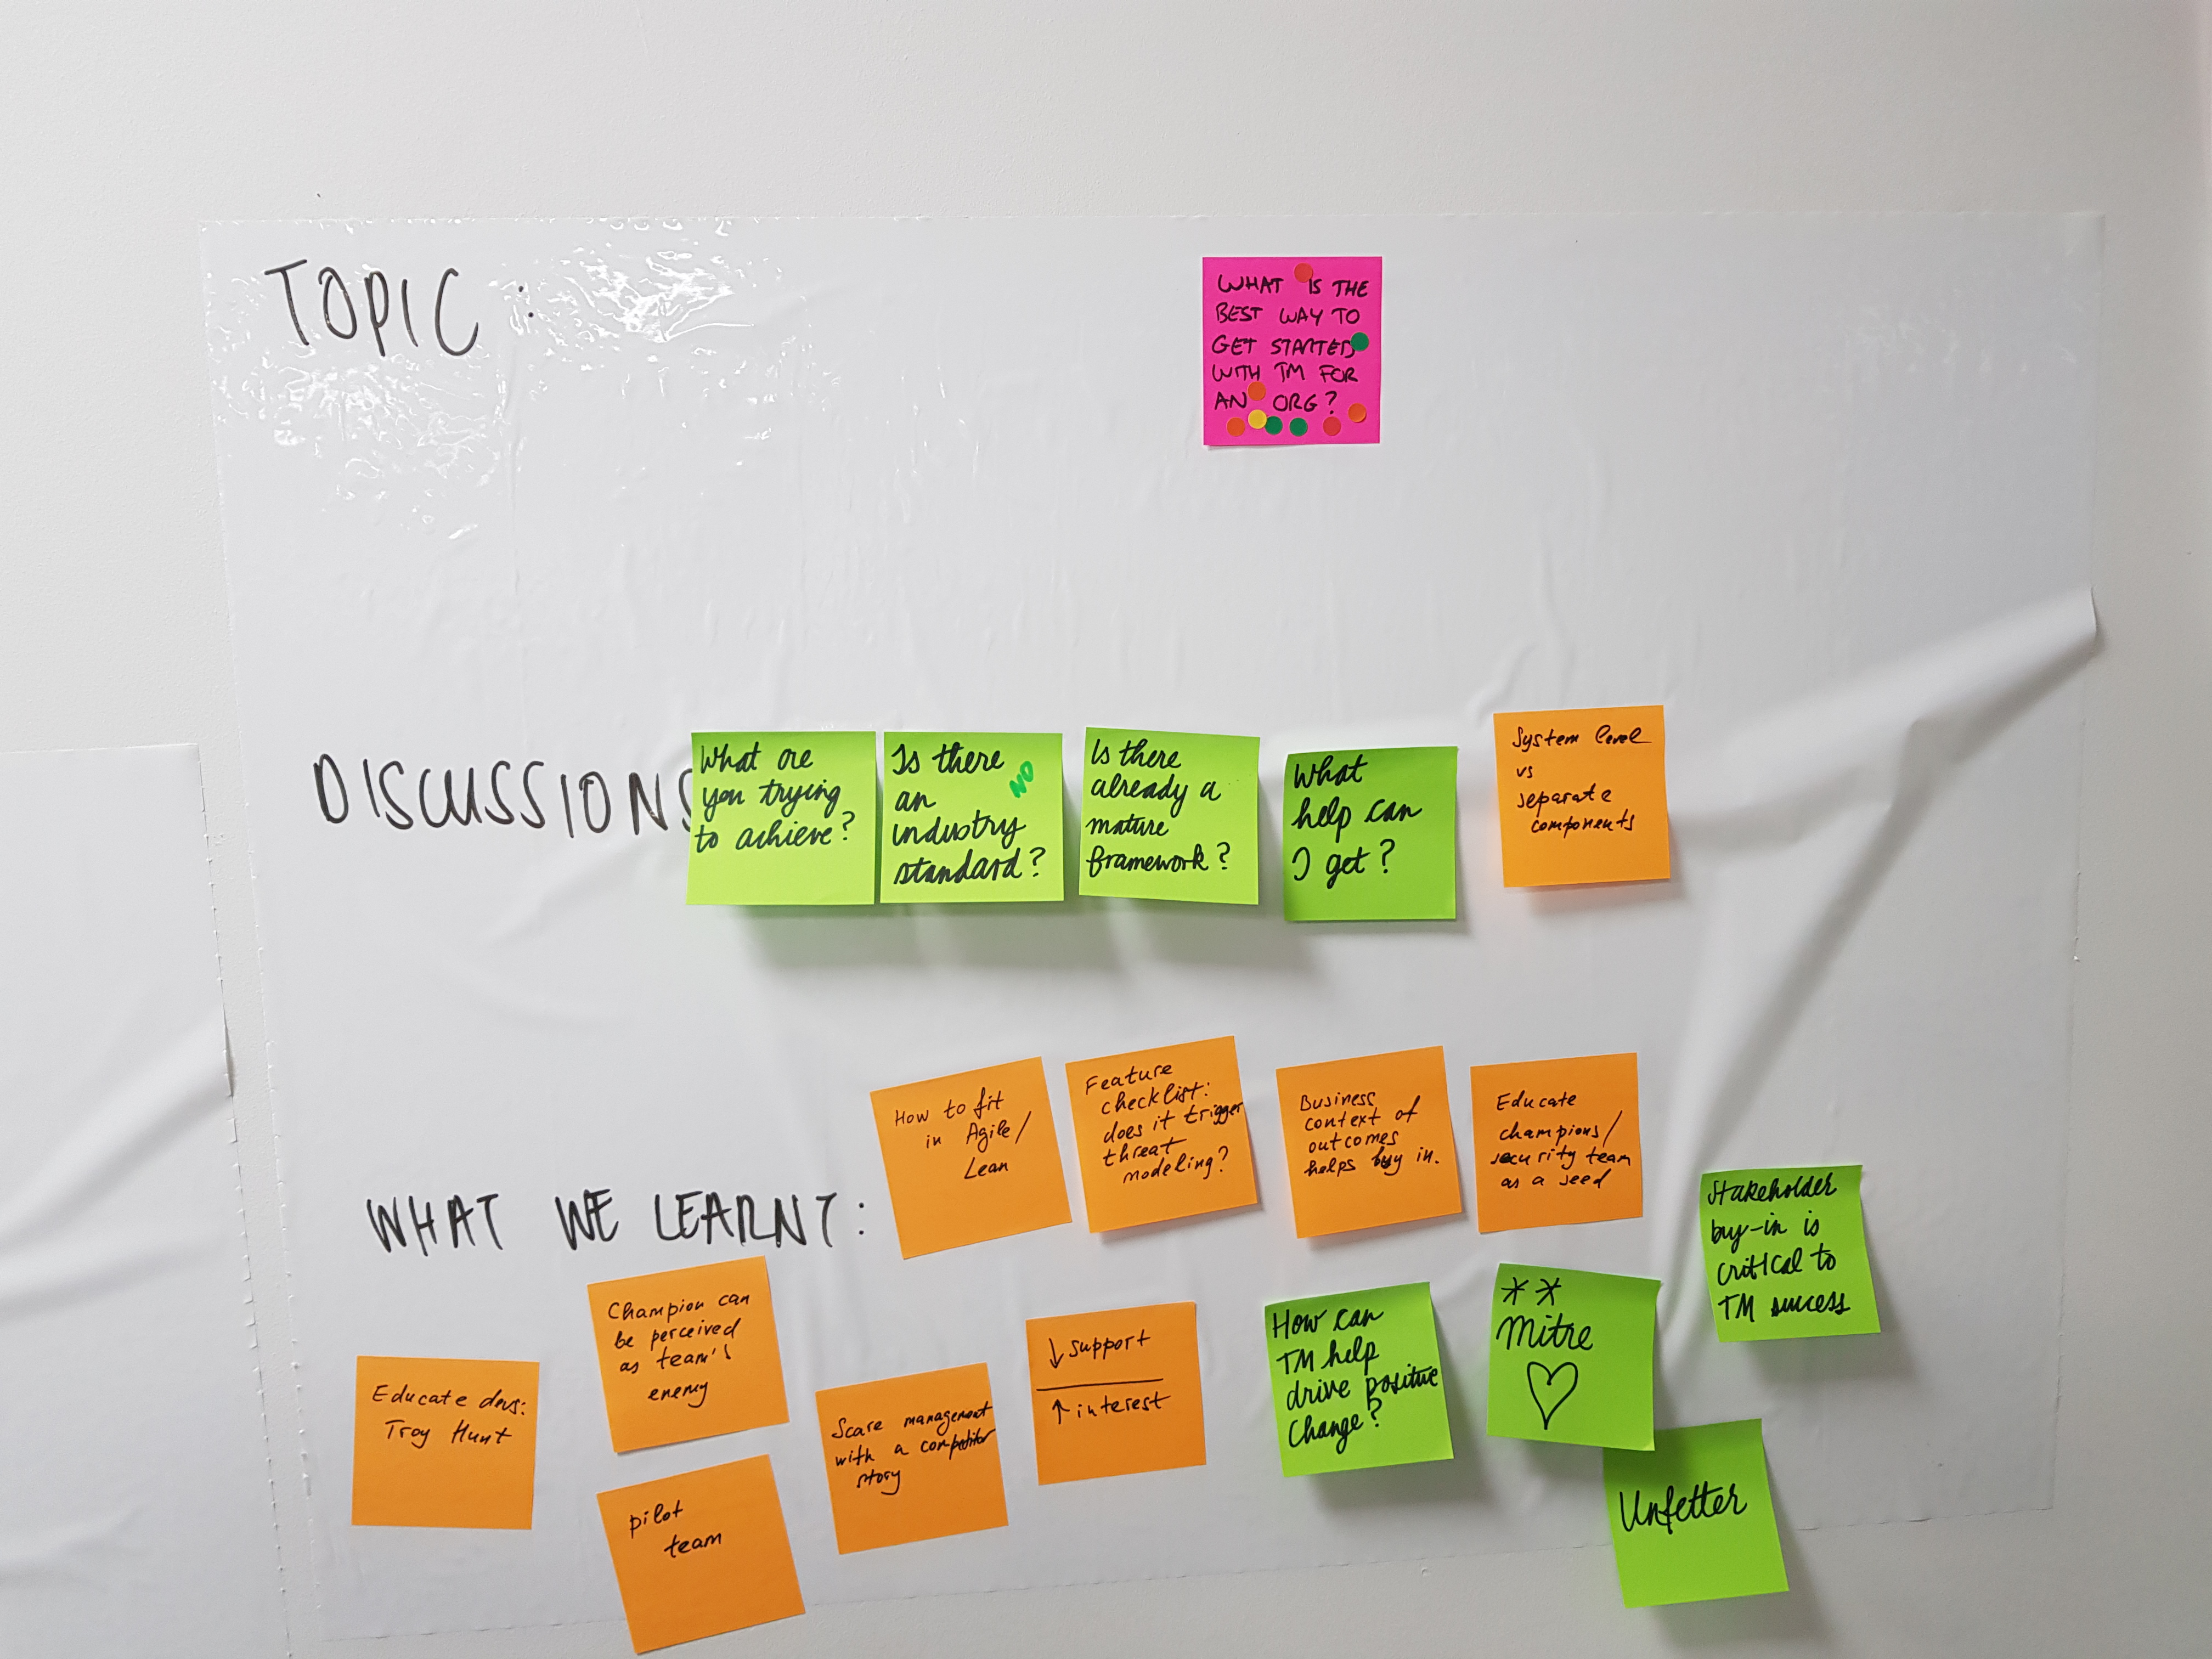 TOPIC :
WHAT IS THE
BEST WAY TO
GET STARTED
WITH TM FOR
AN ORG?
DISCUSSIONS
What are
you trying
to achieve?
Is there
NO
an
industry
standard?
Is there
already a
mature
framework?
What
help can
I get?
System level
vs
separate
components
WHAT WE LEARNT:
How to fit
in Agile/
Lean
Feature
checklist:
does it trigger
threat
modeling?
Business
context of
outcomes
helps buy in.
Educate
champions/
security team
as a seed
Stakeholder
buy-in is
critical to
TM success
Educate devs:
Troy Hunt
Champion can
be perceived
as team's
enemy
pilot
team
Scare management
with a competitor
story
↓ support
↑ interest
How can
TM help
drive positive
Change?
**
Mitre
♡
Unfetter